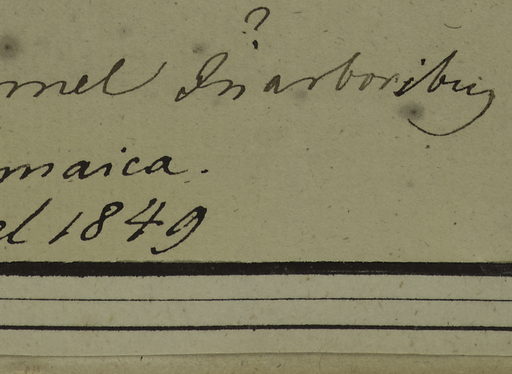 ?
mel In arboribus
maica.
el 1849